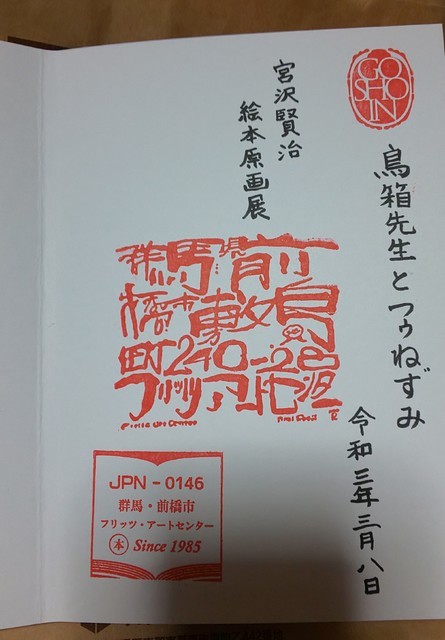 GO
SHO
IN
鳥箱先生とフウねずみ
宮沢賢治
絵本原画展
群馬県前
橋市敷島
町240-28
フリッツ
Fritz Art Center
令和三年三月八日
JPN - 0146
群馬・前橋市
フリッツ・アートセンター
本 Since 1985